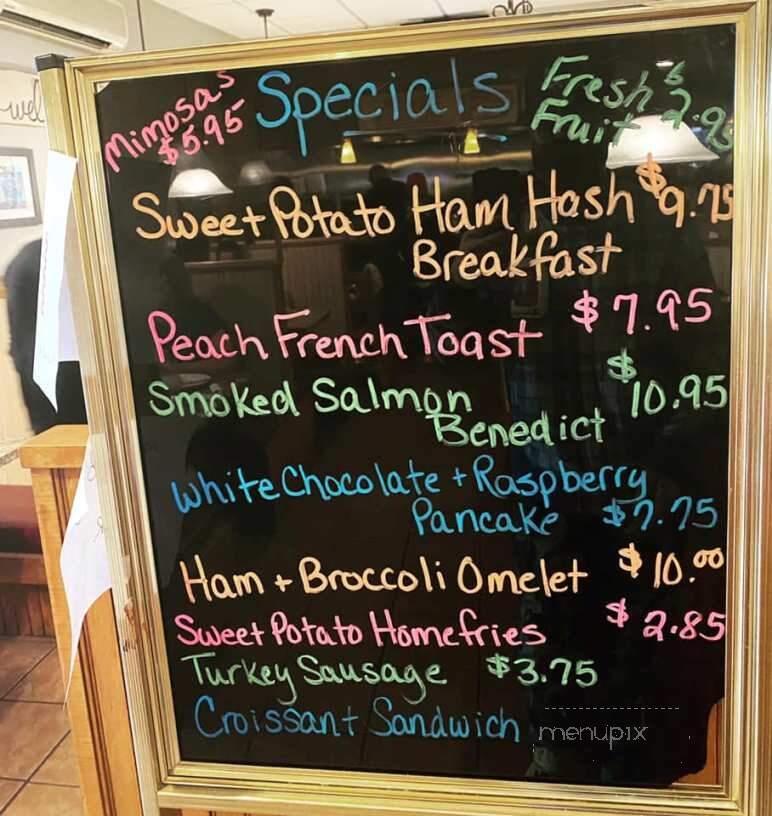 Mimosas
$5.95
Specials
Fresh $
Fruit 2.95
Sweet Potato Ham Hash $9.75
Breakfast
Peach French Toast $7.95
Smoked Salmon $10.95
Benedict
White Chocolate + Raspberry
Pancake $7.75
Ham + Broccoli Omelet $10.00
Sweet Potato Homefries $2.85
Turkey Sausage $3.75
Croissant Sandwich
menupix